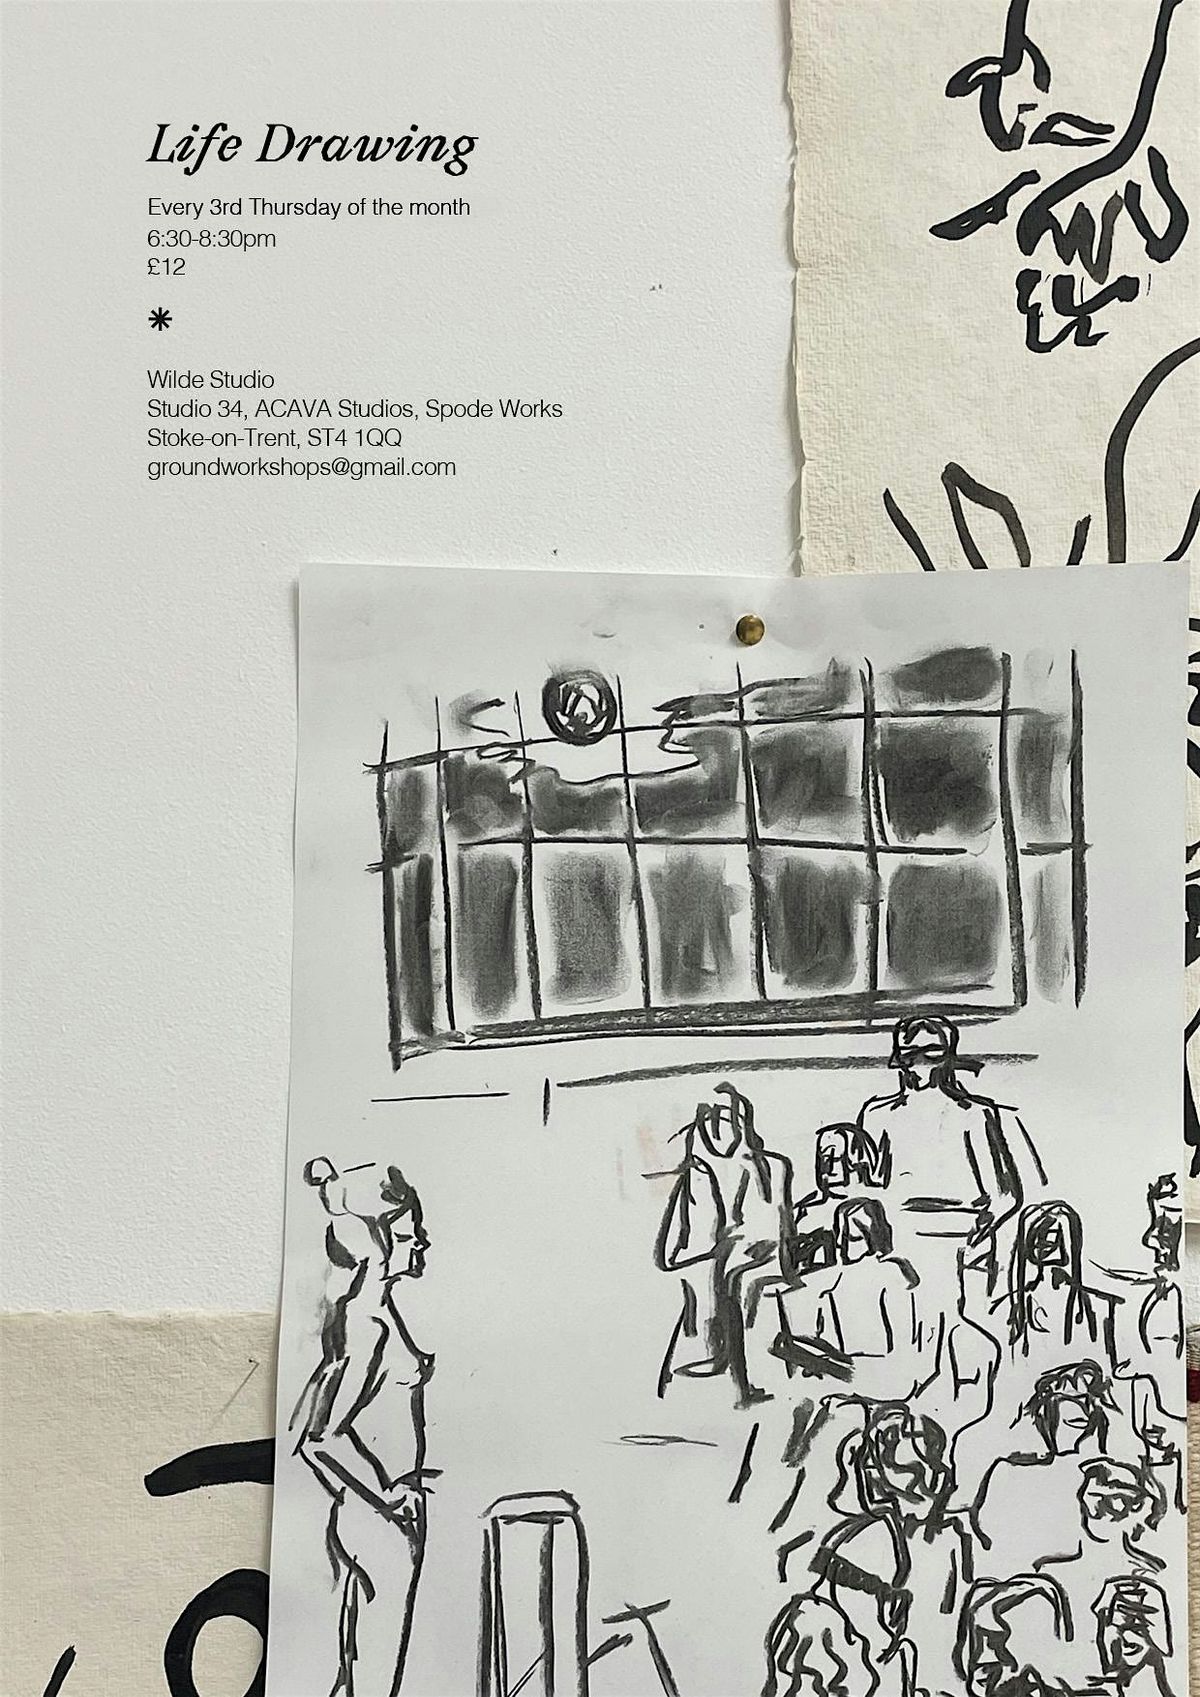 Life Drawing
Every 3rd Thursday of the month
6:30-8:30pm
£12
Wilde Studio
Studio 34, ACAVA Studios, Spode Works
Stoke-on-Trent, ST4 1QQ
groundworkshops@gmail.com